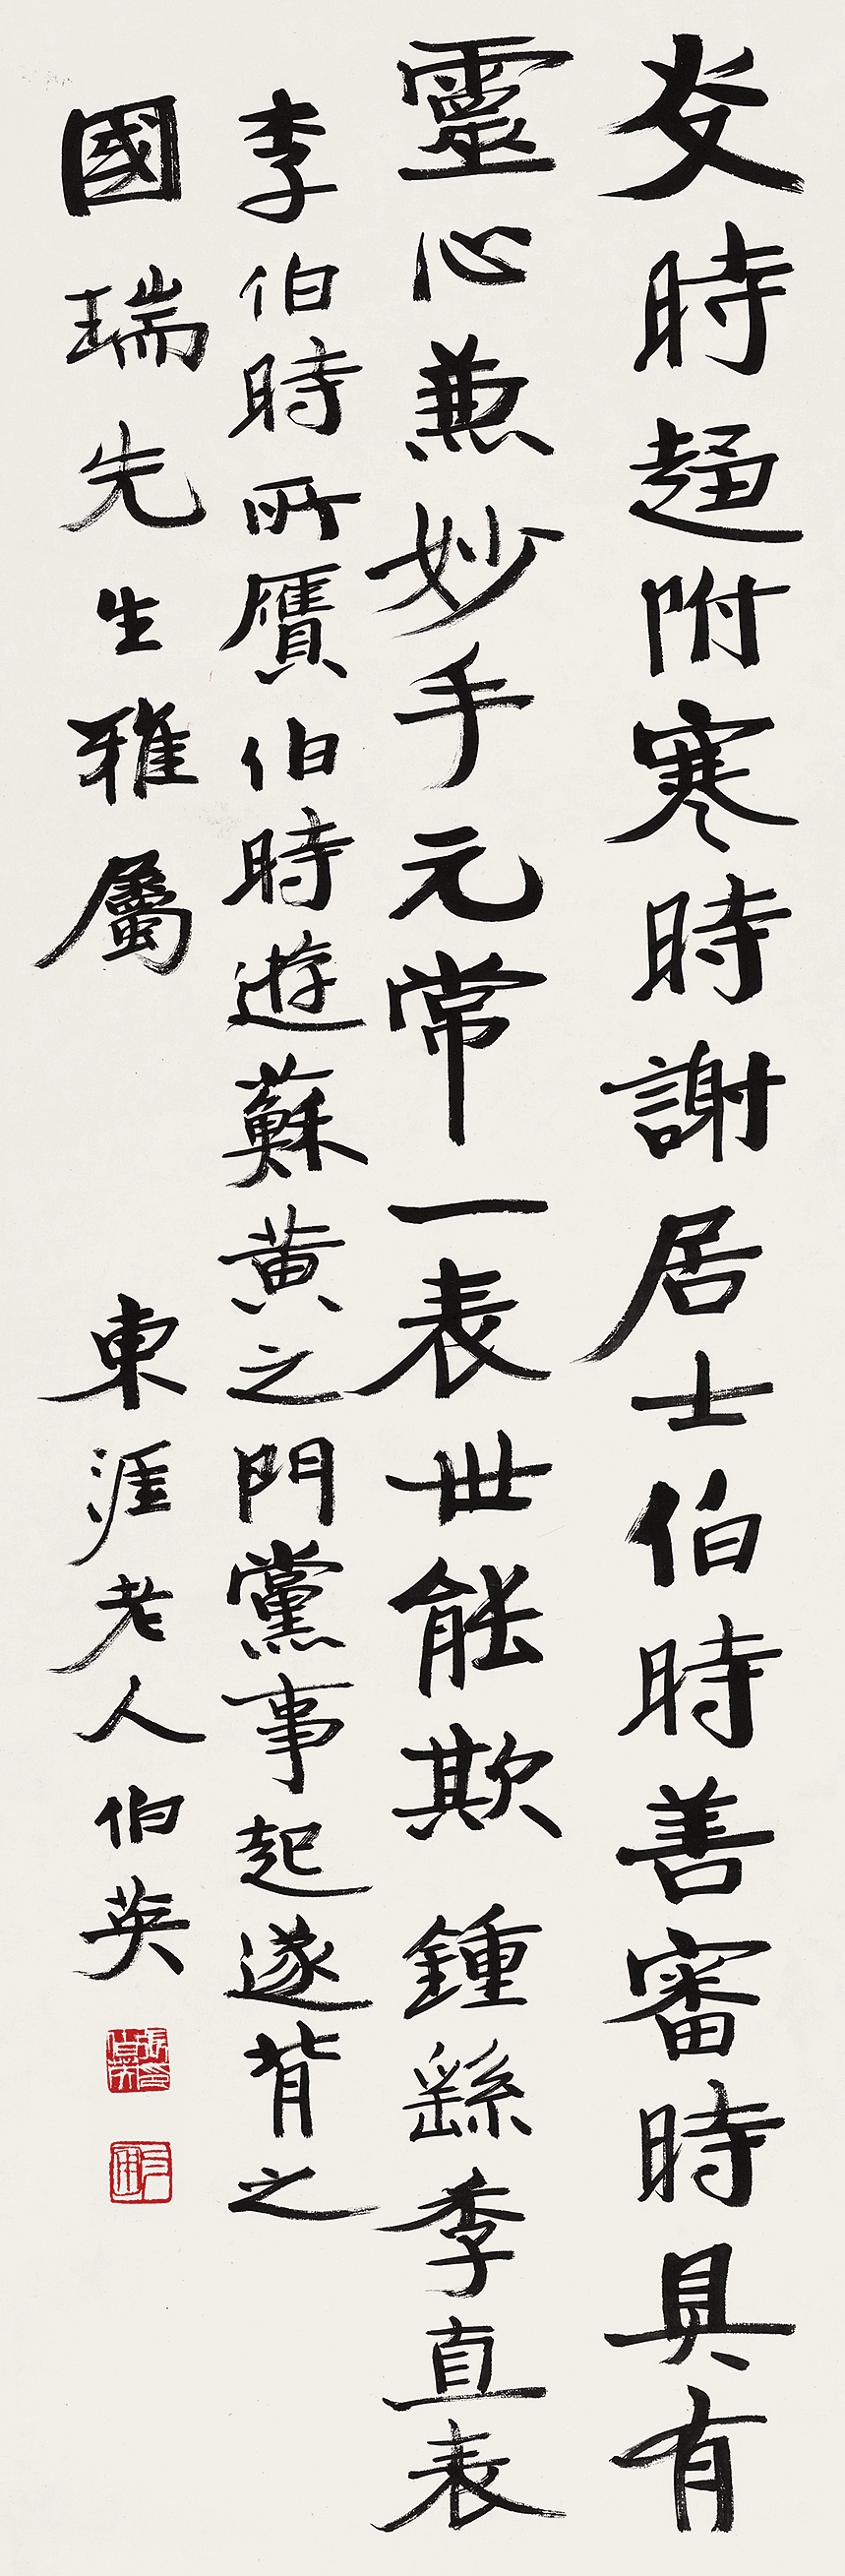 炎時趨附寒時謝居士伯時善審時具有
靈心兼妙手元常一表世能欺 鍾繇季直表
李伯時所贗伯時遊蘇黃之門黨事起遂背之
國瑞先生雅屬 東涯老人伯英